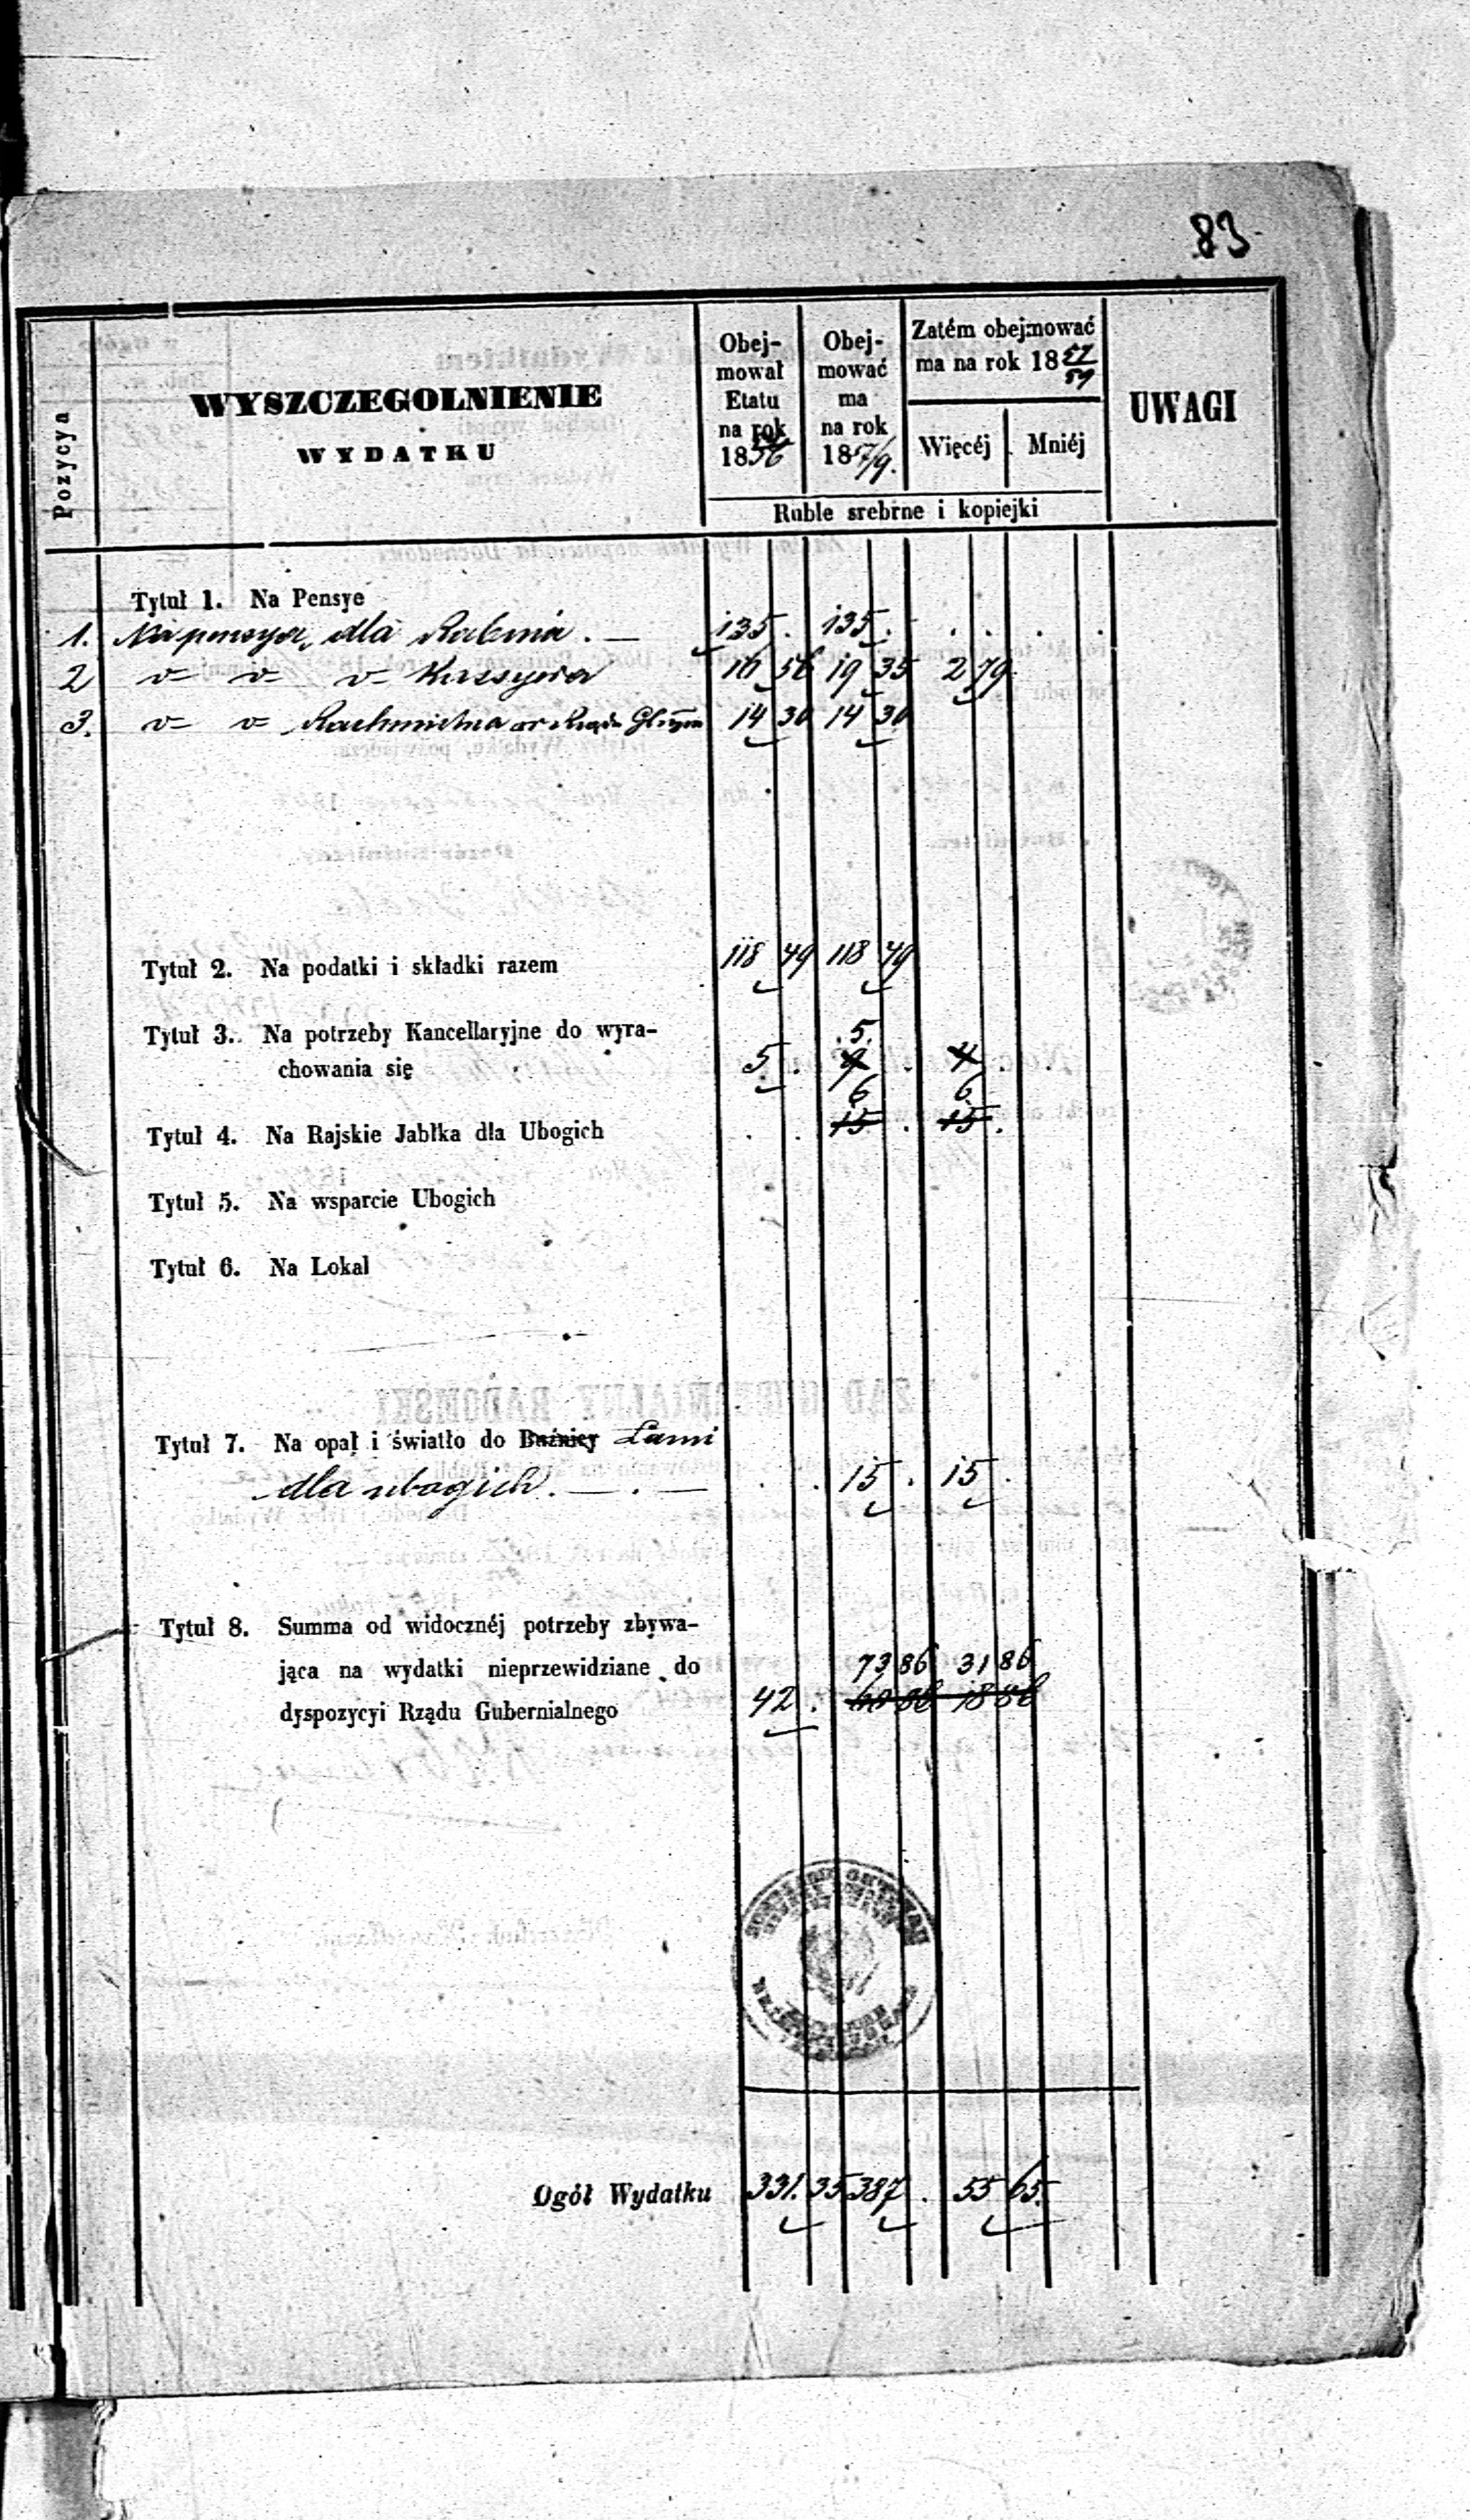 83
Pozycya
WYSZCZEGOLNIENIE
WYDATKU
Obej-
mował
Etatu
na rok
1856
Obej-
mować
ma
na rok
187/9.
Zatém obejmować
ma na rok 1857/59
Więcéj
Mniéj
UWAGI
Ruble srebrne i kopiejki
Tytuł 1. Na Pensye
1. Na pensya dla Rabina . — 135 . 135 . . . . .
2 v= v= v= Kassyera 16 56 19 35 2 79
3. v= v= Rachmistrza w Rządu Gbrym 14 30 14 30
Tytuł 2. Na podatki i składki razem 118 49 118 49
Tytuł 3. Na potrzeby Kancellaryjne do wyra- 5.
chowania się 5 . 9 . 4 .
6 6
Tytuł 4. Na Rajskie Jabłka dla Ubogich . . 15 . 15 .
Tytuł 5. Na wsparcie Ubogich
Tytuł 6. Na Lokal
Tytuł 7. Na opał i światło do Bużnicy Łazni
dla ubogich. — . — . . 15 . 15 .
Tytuł 8. Summa od widocznéj potrzeby zbywa-
jąca na wydatki nieprzewidziane do 73 86 31 86
dyspozycyi Rządu Gubernialnego 42 . 60 86 18 86
Ogół Wydatku 331. 35 387 . 55 65.